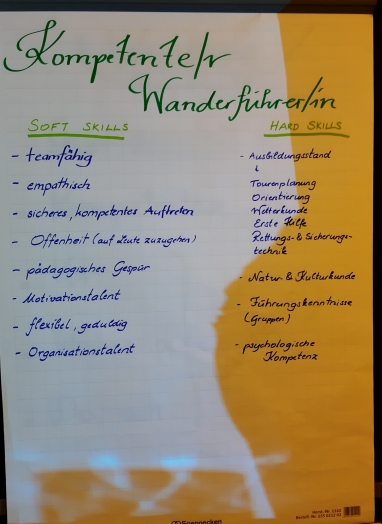 Kompetente/r
Wanderführer/in
SOFT SKILLS
- teamfähig
- empathisch
- sicheres, kompetentes Auftreten
- Offenheit (auf Leute zuzugehen)
- pädagogisches Gespür
- Motivationstalent
- flexibel, geduldig
- Organisationstalent
HARD SKILLS
- Ausbildungsstand
↓
Tourenplanung
Orientierung
Wetterkunde
Erste Hilfe
Rettungs- & Sicherungs-
technik
- Natur- & Kulturkunde
- Führungskenntnisse
(Gruppen)
- psychologische
Kompetenz
Soennecken